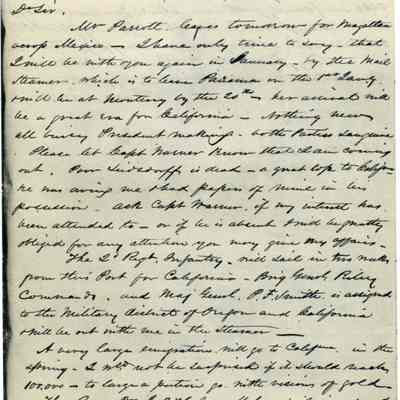 Dr Sir.
Mr Parrott leaves tomorrow for Mazatlan
across Mexico – I have only time to say – that
I will be with you again in January – by the Mail
Steamer – which is to leave Panama on the 1st Jany
& will be at Monterey by the 20th – her arrival will
be a great era for California – Nothing new
all busy President making – both Parties sanguine
Please let Capt Warner know that I am coming
out. Poor Leidesdorff is dead – a great loss to Califor
he was owing me & had papers of mine in his
possession – ask Capt Warner, if my interest has
been attended to – or if he is absent I will be greatly
obliged for any attention you may give my affairs –
The 2d Regt. Infantry – will sail in two weeks
from this Port for California – Brig Genl. Riley
Commands. and Maj Genl. P. F. Smith is assigned
to the Military district of Oregon and California
& will be out with me in the Steamer –
A very large emigration will go to Califna. in the
spring – I will not be surprised if it should reach
100,000 – to large a portion go with visions of gold –